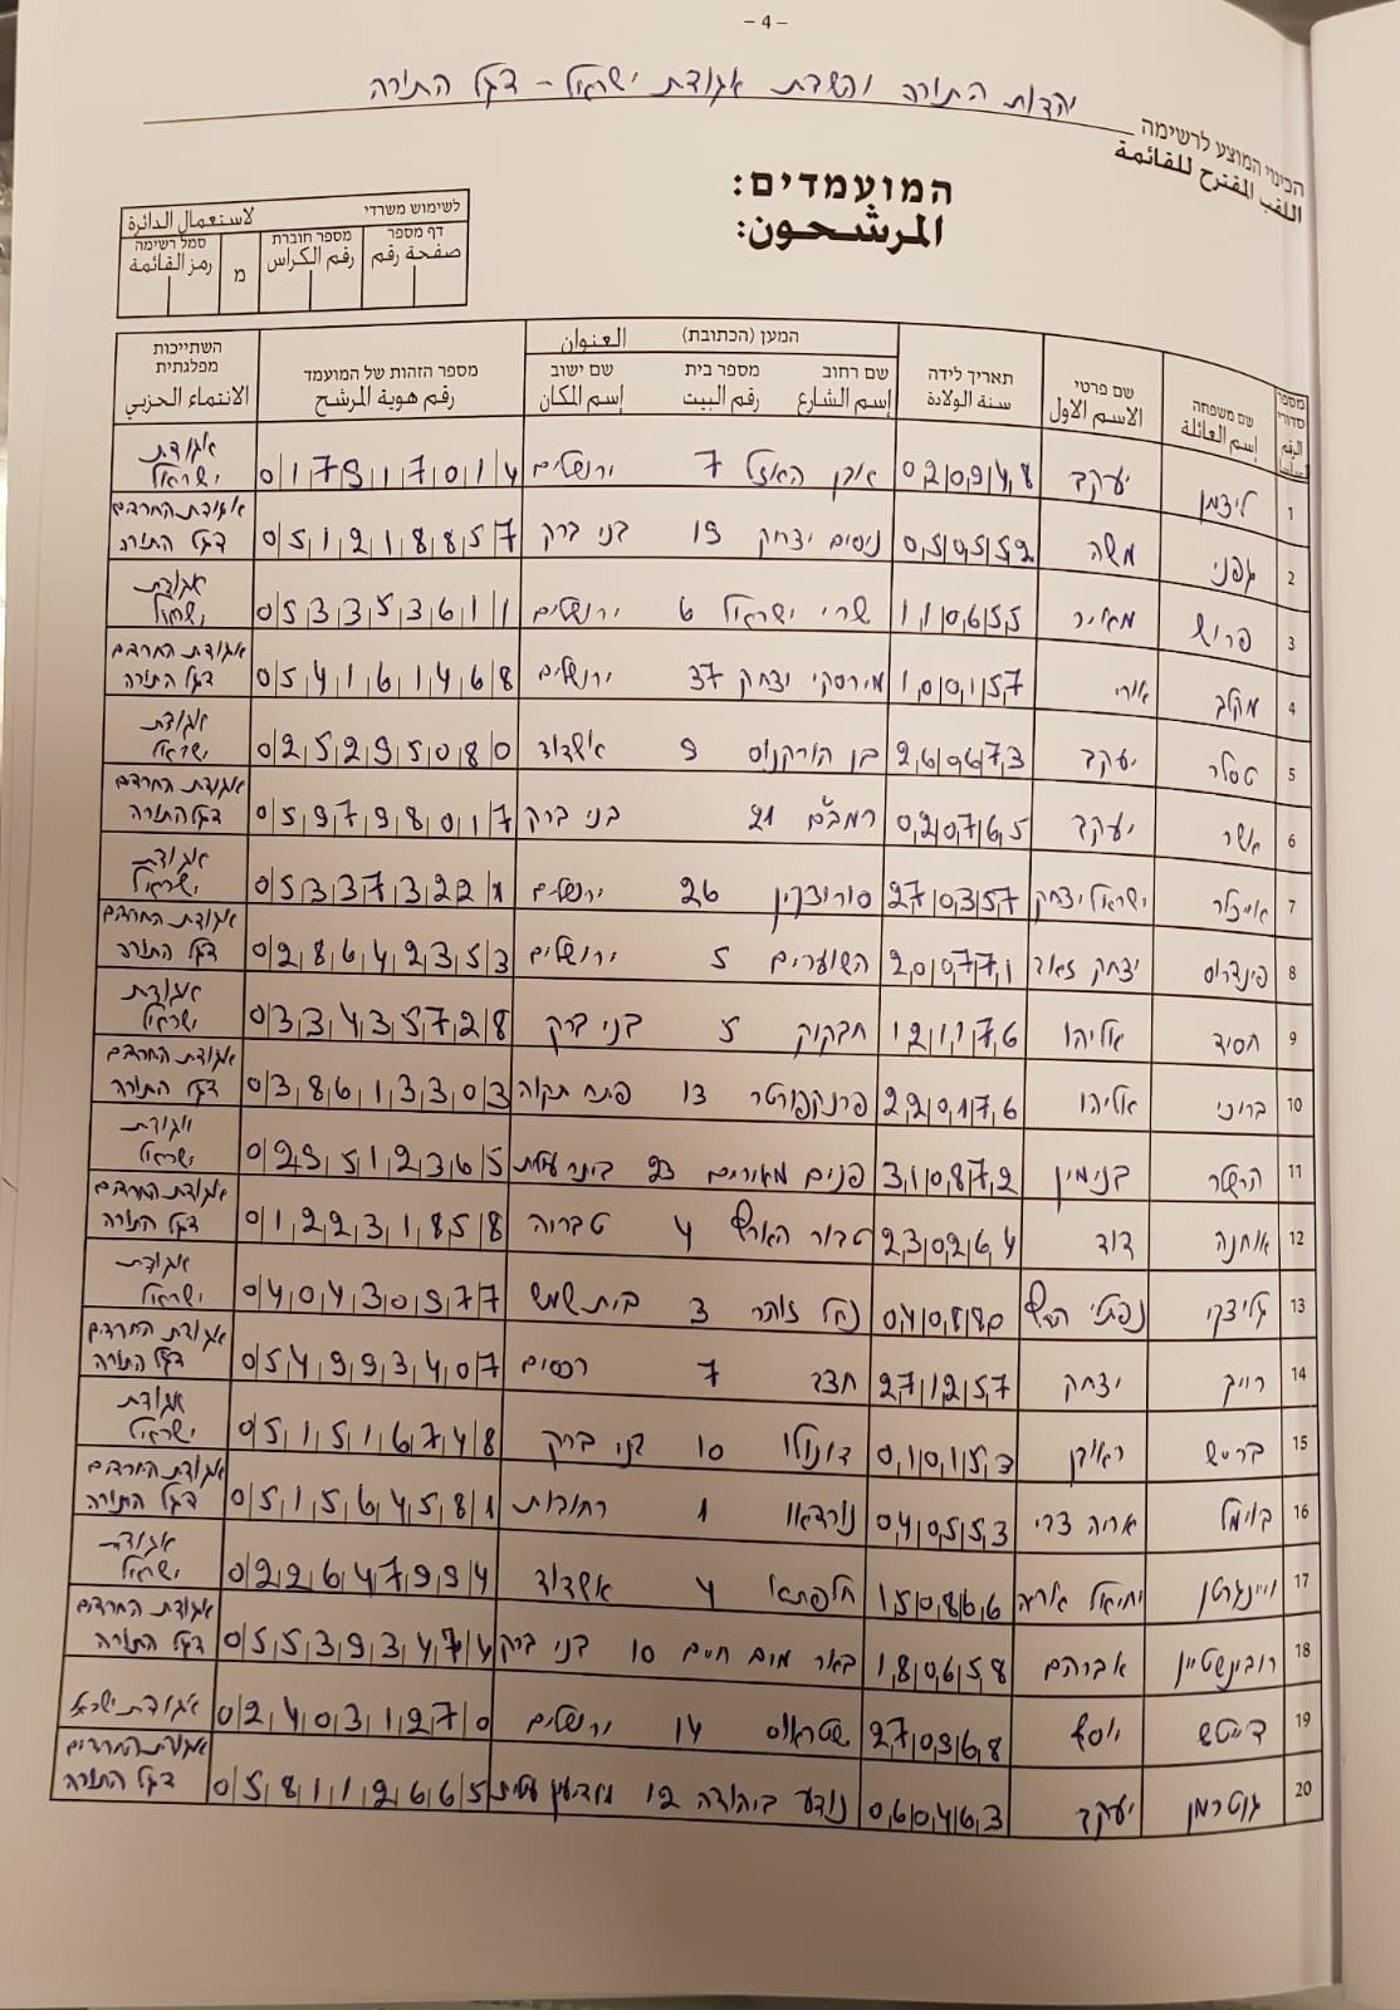 – 4 –
הכינוי המוצע לרשימה יהדות התורה והשבת אגודת ישראל - דגל התורה
اللقب المقترح للقائمة
המועמדים:
المرشحون:
לשימוש משרדי لاستعمال الدائرة
דף מספר מספר חוברת מ סמל רשימה
صفحة رقم رقم الكراس رمز القائمة
המען (הכתובת) العنوان
מספר סדורי שם משפחה שם פרטי תאריך לידה שם רחוב מספר בית שם ישוב מספר הזהות של המועמד השתייכות מפלגתית
الرقم إسم العائلة الاسم الاول سنة الولادة إسم الشارع رقم البيت إسم المكان رقم هوية المرشح الانتماء الحزبي
1 ליצמן יעקב 020948 אבן האזל 7 ירושלים 017917014 אגודת ישראל
2 גפני משה 050552 ניסים יצחק 19 בני ברק 051218857 אגודת החרדים דגל התורה
3 פרוש מאיר 110655 שרי ישראל 6 ירושלים 053353611 אגודת ישראל
4 מקלב אורי 100157 מירסקי יצחק 37 ירושלים 054161468 אגודת החרדים דגל התורה
5 טסלר יעקב 260673 בן הורקנוס 9 אשדוד 025295080 אגודת ישראל
6 אשר יעקב 020765 רמב"ם 21 בני ברק 059798017 אגודת החרדים דגל התורה
7 אייכלר ישראל יצחק 270357 סורוצקין 26 ירושלים 053373221 אגודת ישראל
8 פינדרוס יצחק זאב 200771 השוערים 5 ירושלים 028642353 אגודת החרדים דגל התורה
9 חסיד אליהו 121176 חבקוק 5 בני ברק 033435728 אגודת ישראל
10 ברוכי אליהו 220176 פרנקפורטר 13 פתח תקוה 038613303 אגודת החרדים דגל התורה
11 הרשלר בנימין 310872 פנים מאירים 23 ביתר עילית 029512365 אגודת ישראל
12 אוחנה דוד 230264 טבור הארץ 4 טבריה 012231858 אגודת החרדים דגל התורה
13 גליצקי נפתלי הערץ 040880 נחל זוהר 3 בית שמש 040430977 אגודת ישראל
14 רייך יצחק 271257 חצב 7 רכסים 054993407 אגודת החרדים דגל התורה
15 ראובן 010153 דונולו 10 בני ברק 051516748 אגודת ישראל
16 בוימל אריה צבי 040553 נורדאו 1 רחובות 051564581 אגודת החרדים דגל התורה
17 ויינגרטן יחיאל אריה 150866 חלפתא 4 אשדוד 022647994 אגודת ישראל
18 רובינשטיין אברהם 180658 באר מים חיים 10 בני ברק 055393474 אגודת החרדים דגל התורה
19 דייטש יוסף 270968 שטראוס 14 ירושלים 024031270 אגודת ישראל
20 גוטרמן יעקב 060463 נודע ביהודה 12 מודיעין עילית 058112665 אגודת החרדים דגל התורה